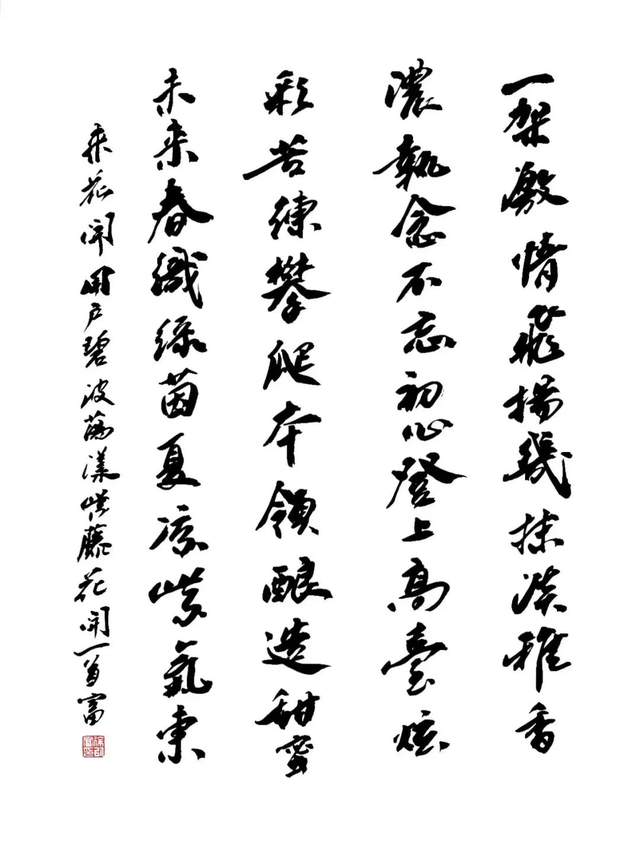 一架激情飛揚幾抹淡雅香
濃執念不忘初心登上高臺炫
彩苦練攀爬本領釀造甜蜜
未来春織綠茵夏凉紫氣東
来户碧波蕩漾紫藤花開一首富